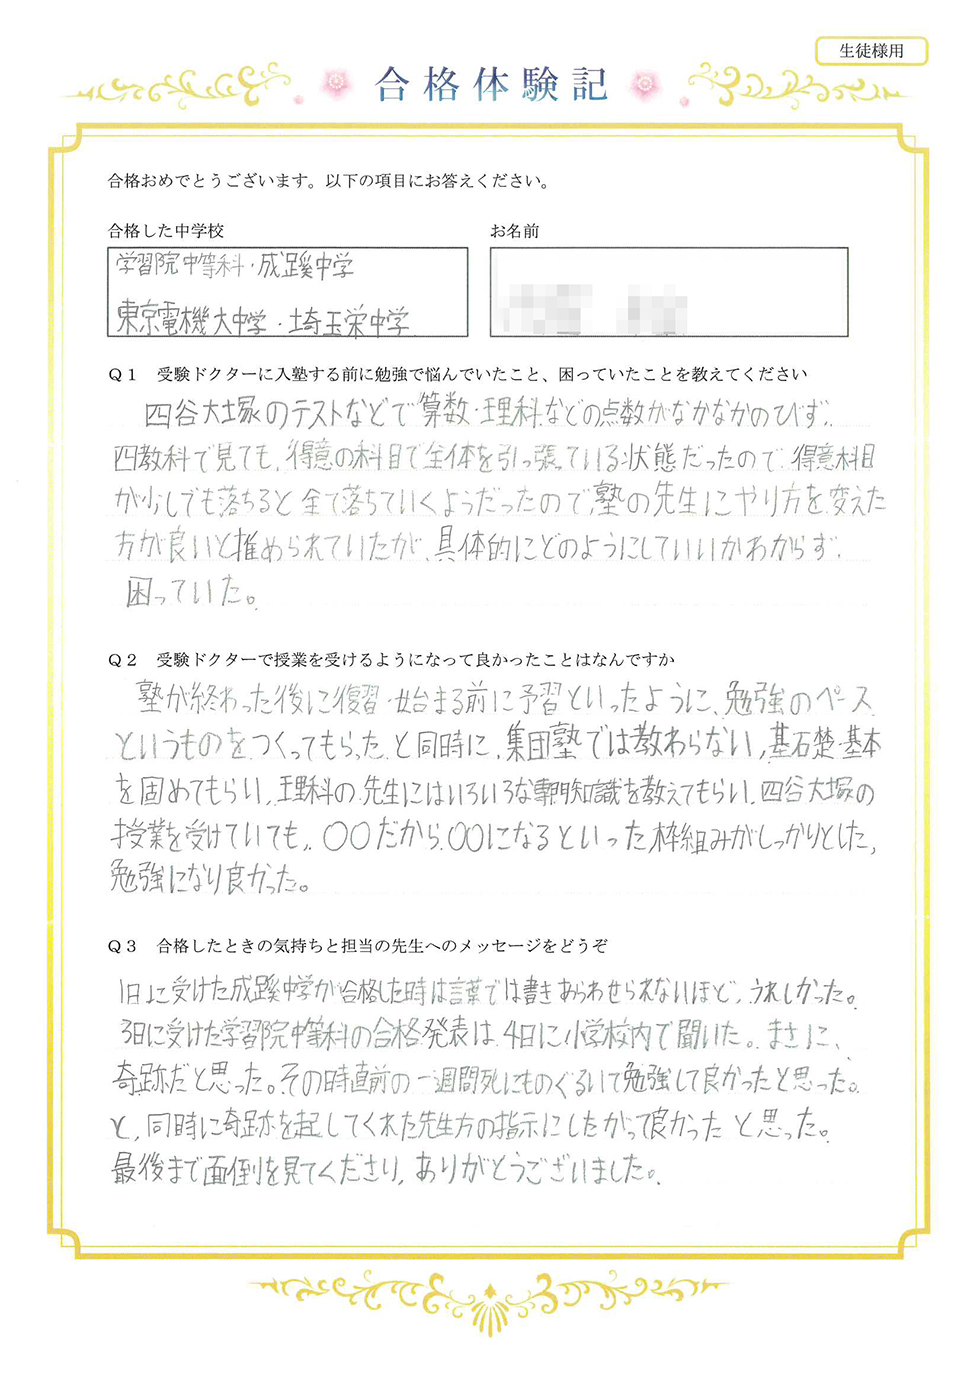 生徒様用
合格体験記
合格おめでとうございます。以下の項目にお答えください。
合格した中学校
お名前
学習院中等科・成蹊中学
東京電機大中学・埼玉栄中学
Q1 受験ドクターに入塾する前に勉強で悩んでいたこと、困っていたことを教えてください
四谷大塚のテストなどで算数・理科などの点数がなかなかのびず、
四教科で見ても、得意の科目で全体を引っ張っている状態だったので、得意科目
が少しでも落ちると全て落ちていくようだったので、塾の先生にやり方を変えた
方が良いと推められていたが、具体的にどのようにしていいかわからず、
困っていた。
Q2 受験ドクターで授業を受けるようになって良かったことはなんですか
塾が終わった後に復習・始まる前に予習といったように、勉強のペース
というものをつくってもらった。と同時に、集団塾では教わらない、基石楚・基本
を固めてもらい、理科の先生にはいろいろな専門知識を教えてもらい、四谷大塚の
授業を受けていても、〇〇だから、〇〇になるといった枠組みがしっかりとした、
勉強になり良かった。
Q3 合格したときの気持ちと担当の先生へのメッセージをどうぞ
1日に受けた成蹊中学が合格した時は言葉では書きあらわせられないほど、うれしかった。
3日に受けた学習院中等科の合格発表は、4日に小学校内で聞いた。まさに、
奇跡だと思った。その時直前の一週間死にものぐるいで勉強して良かったと思った。
と、同時に奇跡を起してくれた先生方の指示にしたがって良かったと思った。
最後まで面倒を見てくださり、ありがとうございました。